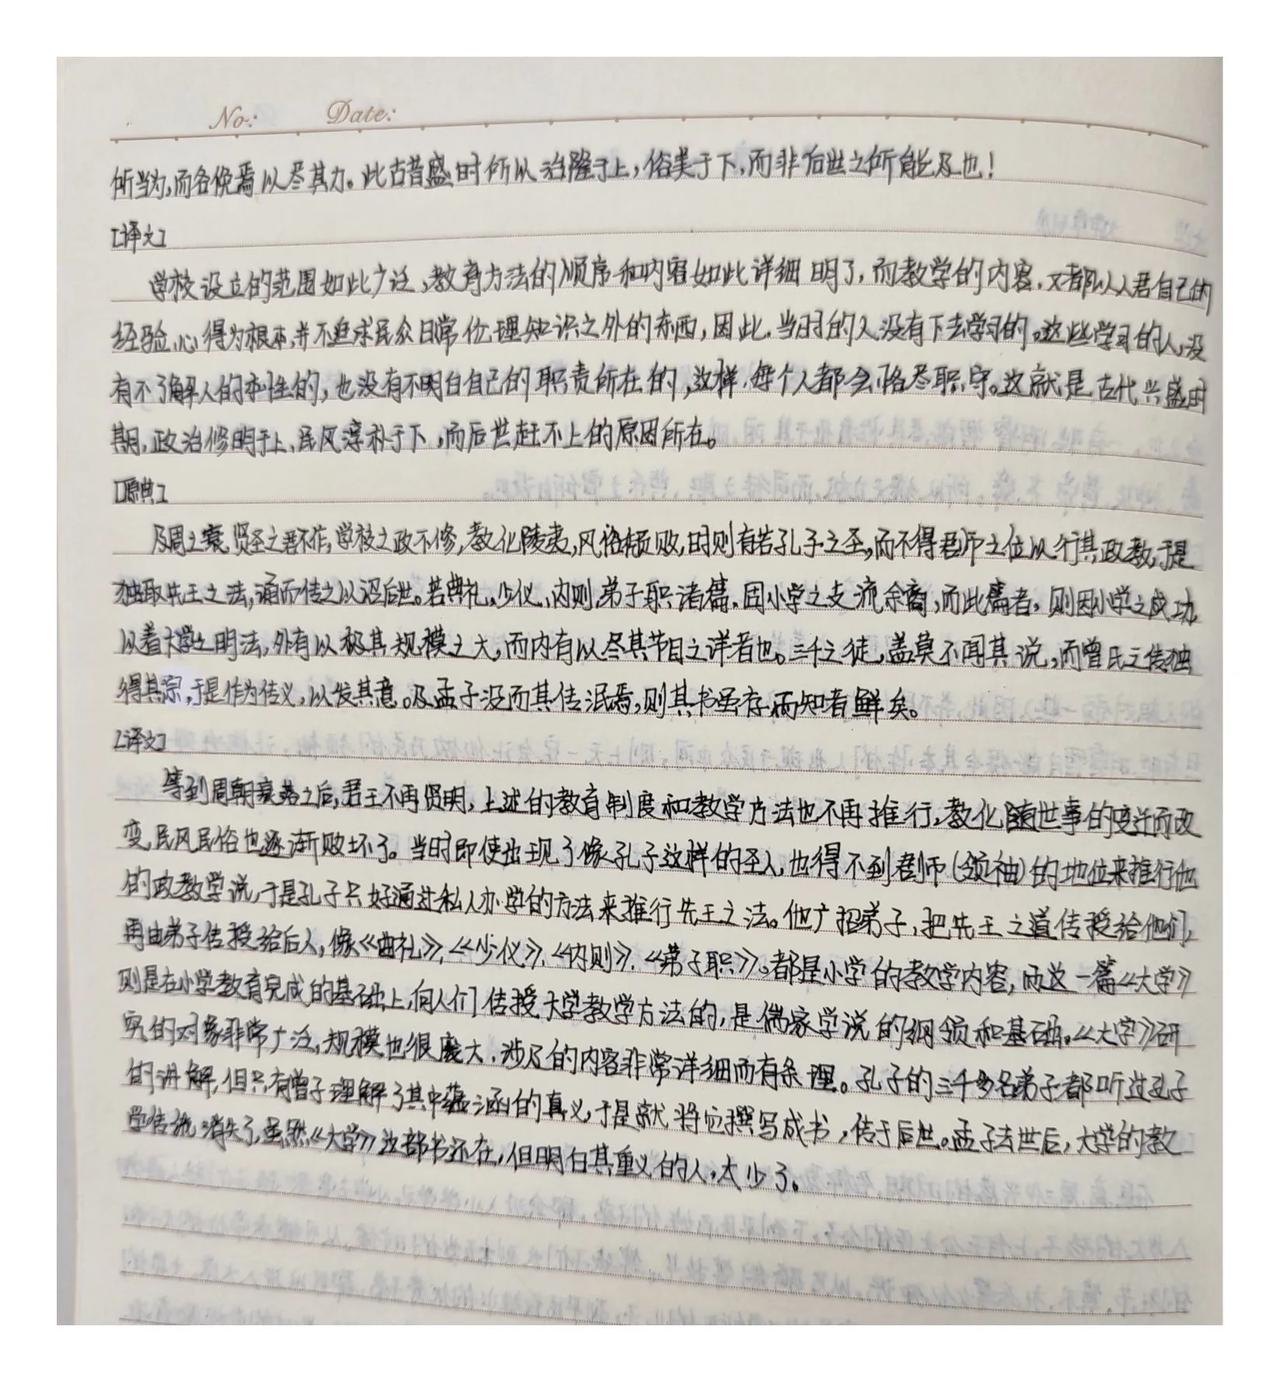 No:    Date:
所当为,而各俛焉以尽其力。此古昔盛时所以治隆于上,俗美于下,而非后世之所能及也!
[译文]
学校设立的范围如此广泛,教育方法的顺序和内容如此详细明了,而教学的内容,又都以人君自己的
经验心得为根本,并不追求民众日常伦理知识之外的东西,因此,当时的人没有不去学习的。这些学习的人,没
有不了解人的本性的,也没有不明白自己的职责所在的,这样,每个人都会恪尽职守。这就是古代兴盛时
期,政治修明于上、民风淳朴于下,而后世赶不上的原因所在。
[原典]
及周之衰,贤圣之君不作,学校之政不修,教化陵夷,风俗颓败,时则有若孔子之圣,而不得君师之位以行其政教,于是
独取先王之法,诵而传之以诏后世。若典礼、少仪、内则、弟子职诸篇,固小学之支流余裔,而此篇者,则因小学之成功,
以着大学之明法,外有以极其规模之大,而内有以尽其节目之详者也。三千之徒,盖莫不闻其说,而曾氏之传独
得其宗,于是作为传义,以发其意。及孟子没而其传泯焉,则其书虽存,而知者鲜矣。
[译文]
等到周朝衰弱之后,君王不再贤明,上述的教育制度和教学方法也不再推行,教化随世事的变迁而改
变,民风民俗也逐渐败坏了。当时即使出现了像孔子这样的圣人,也得不到君师(领袖)的地位来推行他
的政教学说,于是孔子只好通过私人办学的方法来推行先王之法。他广招弟子,把先王之道传授给他们,
再由弟子传授给后人,像《曲礼》,《少仪》,《内则》,《弟子职》。都是小学的教学内容,而这一篇《大学》
则是在小学教育完成的基础上,向人们传授大学教学方法的,是儒家学说的纲领和基础。《大学》研
究的对象非常广泛,规模也很庞大,涉及的内容非常详细而有条理。孔子的三千多名弟子都听过孔子
的讲解,但只有曾子理解了其中蕴涵的真义,于是就将它撰写成书,传于后世。孟子去世后,大学的教
学传统消失了,虽然《大学》这部书还在,但明白其重义的人,太少了。